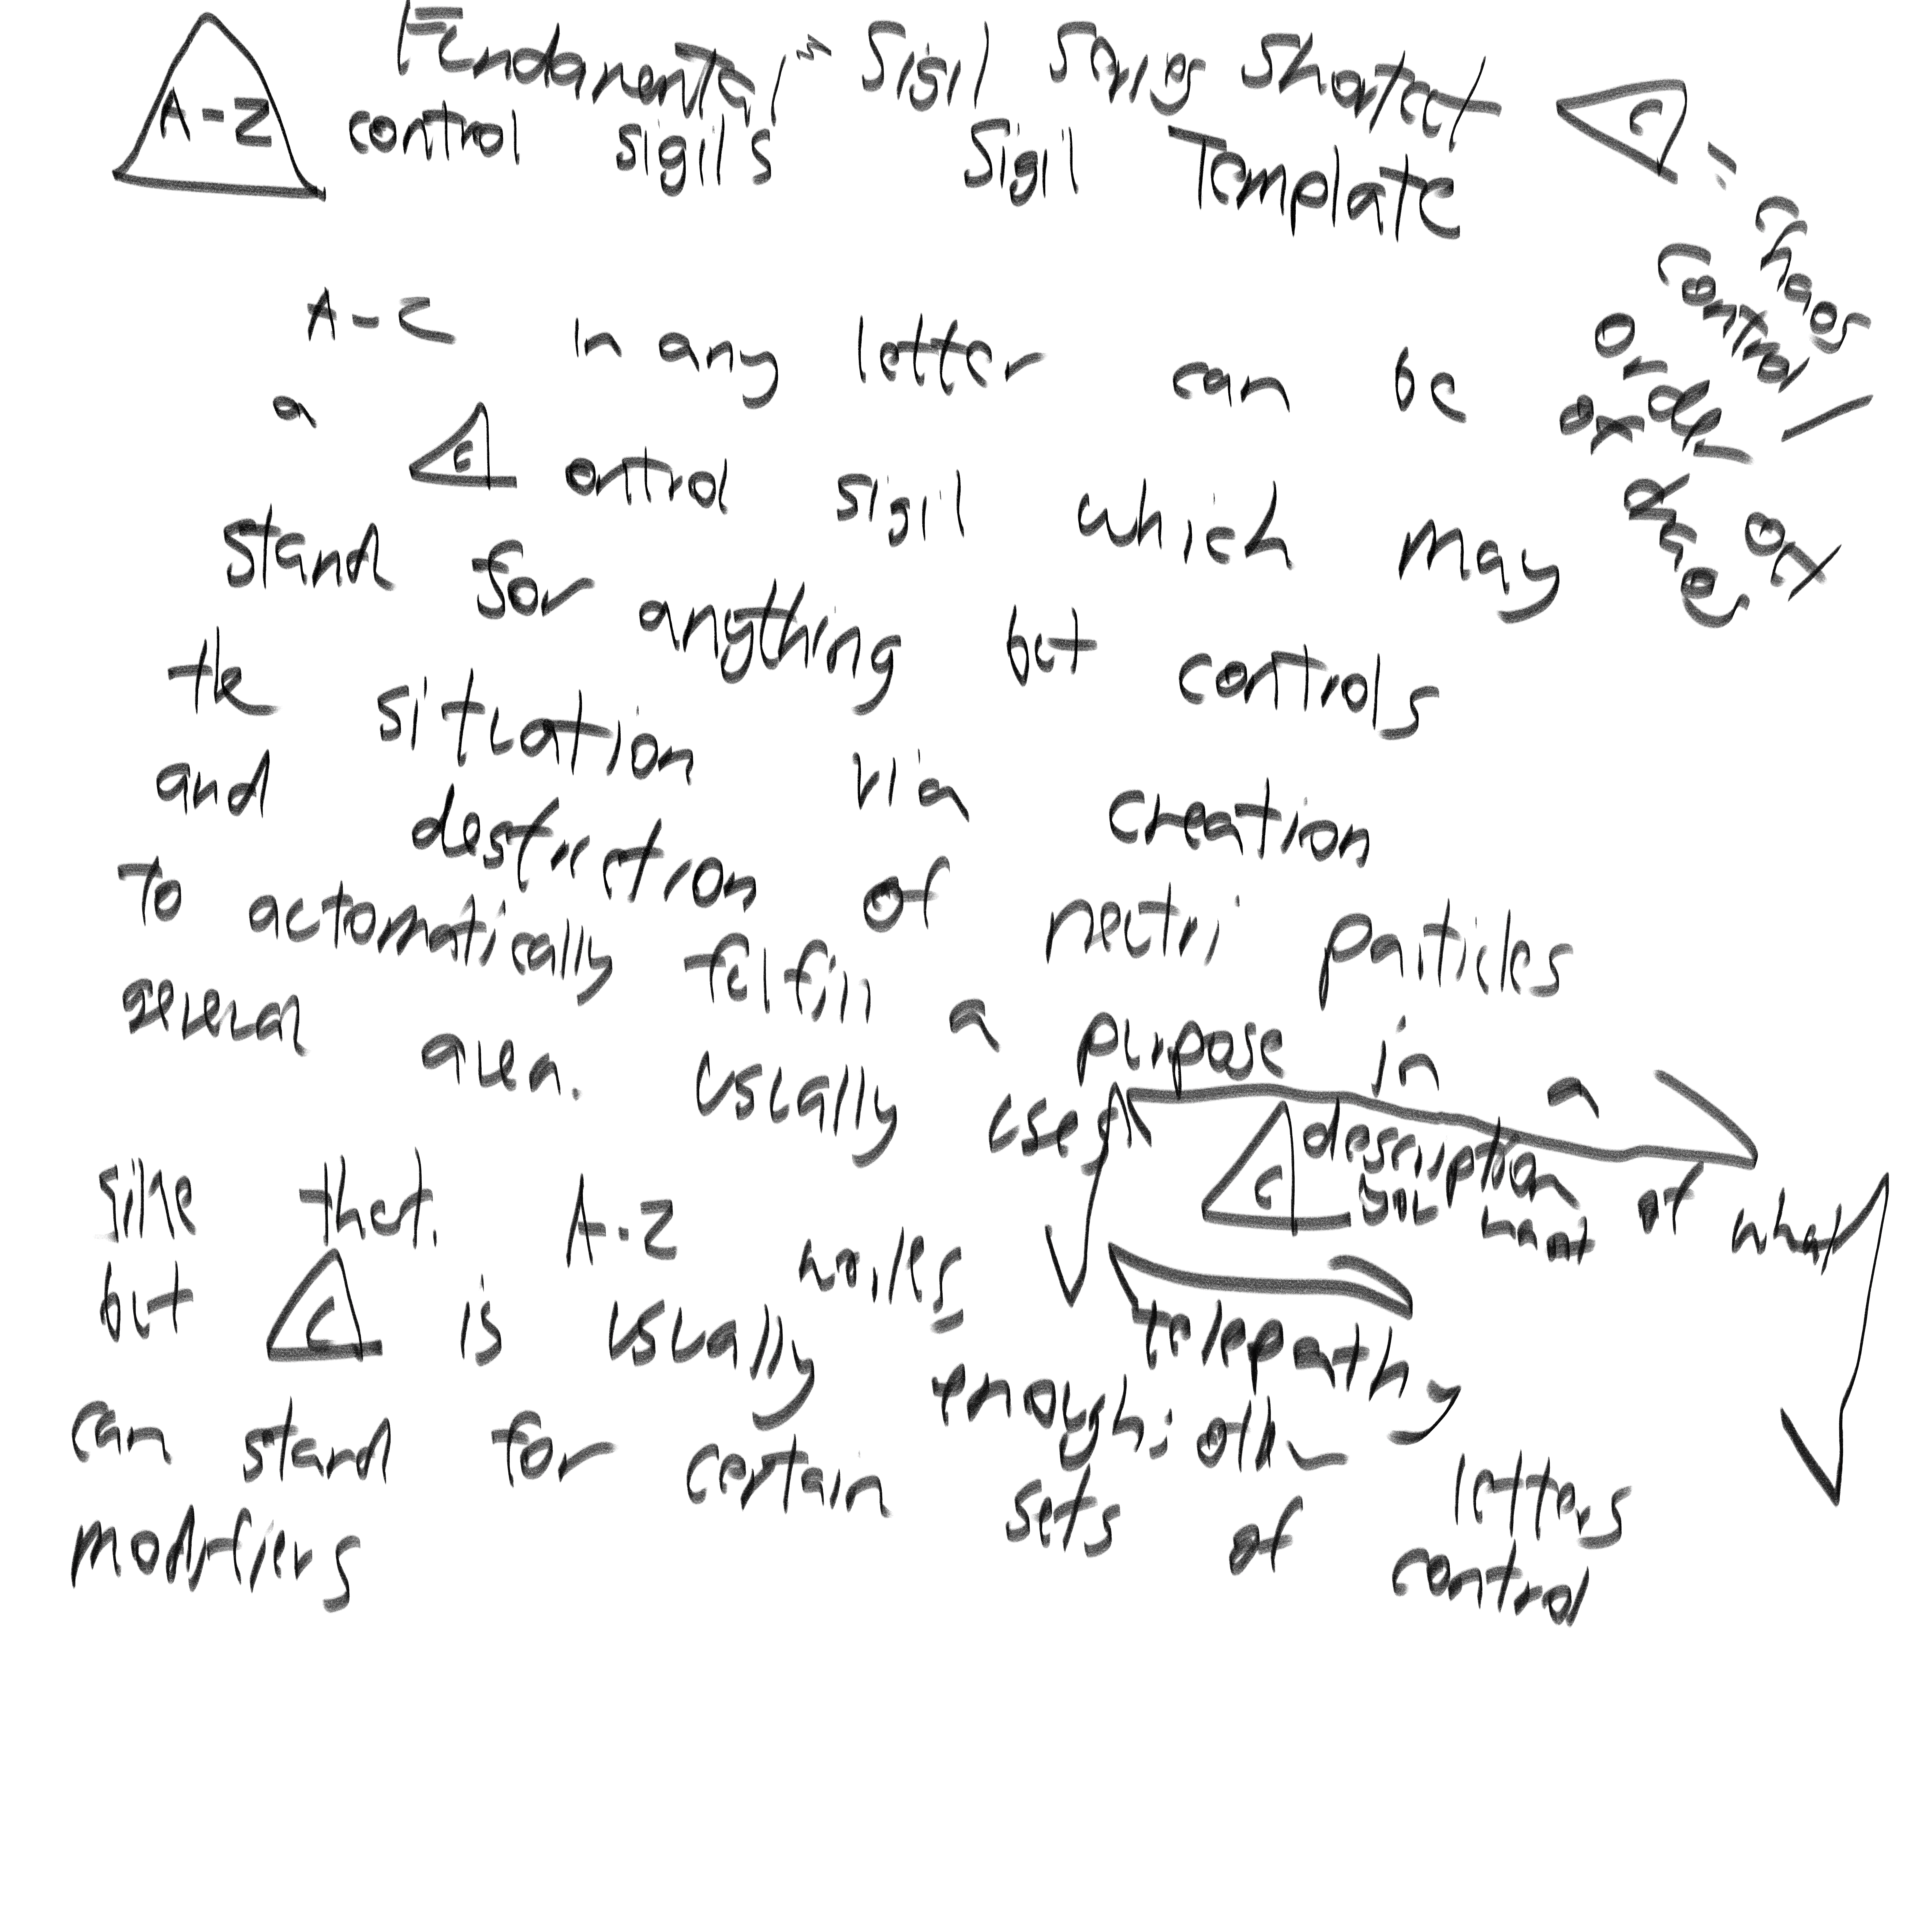 A-Z Fundamental Sigil Series Shortcut
control sigils Sigil Template
C = chaos
control /
order
or
or
A-Z in any letter can be
a C ontrol sigil which may
stand for anything but controls
the situation via creation
and destruction of neutri particles
to automatically fulfill a purpose in a
several area. usually used
C description of what
you want
telepathy
like that. A-Z works
but C is usually enough; other letters
can stand for certain sets of control
modifiers